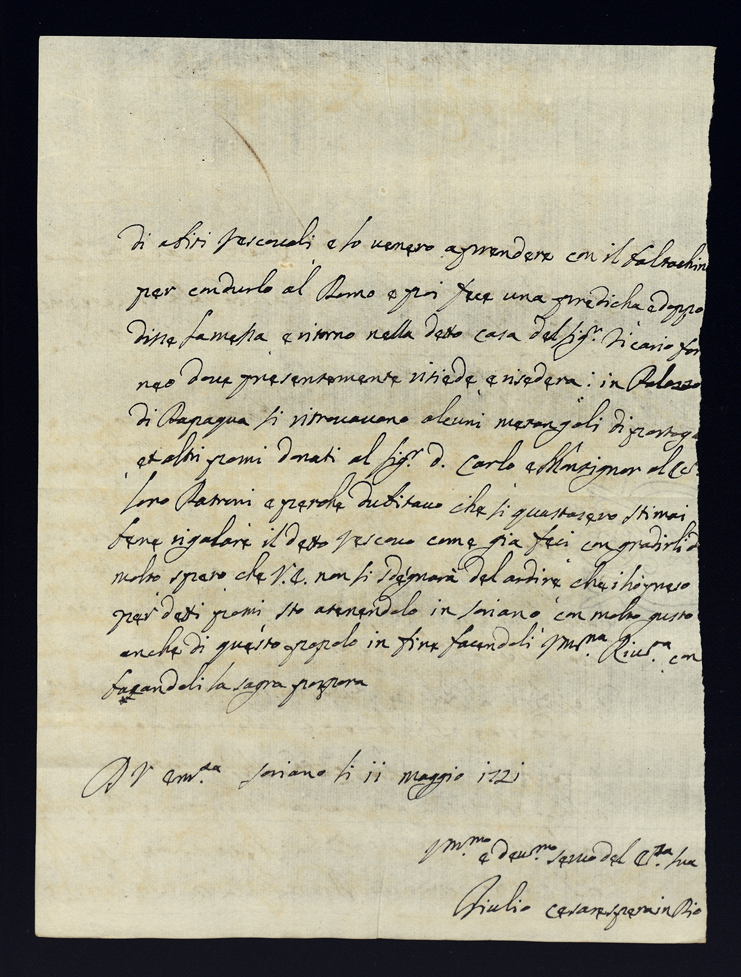 di abiti vescovali e lo venero aprendere con il baldachin
per condurlo al Domo e poi fece una predicha e doppo
disse la messa e ritorno nella detta casa del Sig.r Vicario for
neo dove presentemente risiede e risedera: in Palazzo
di Papaqua si ritrovavano alcuni merangoli di portoga
et altri pomi donati al Sig.r d. Carlo e Monsignor al
loro Patroni e perche dubitavo che si guastasero stimai
bene rigalare il detto vescovo come gia feci con gradirli
molto spero che V.E. non si sdegnara del ardire che ho preso
per detti pomi sto atenendolo in Soriano con molto gusto
anche di questo popolo in fine facendoli Um.na River.a con
baciandoli la sagra porpora
D V Em.za Soriano li 11 maggio 1721
Um.mo e deu.mo seruo del E.za sua
Giulio Cesare